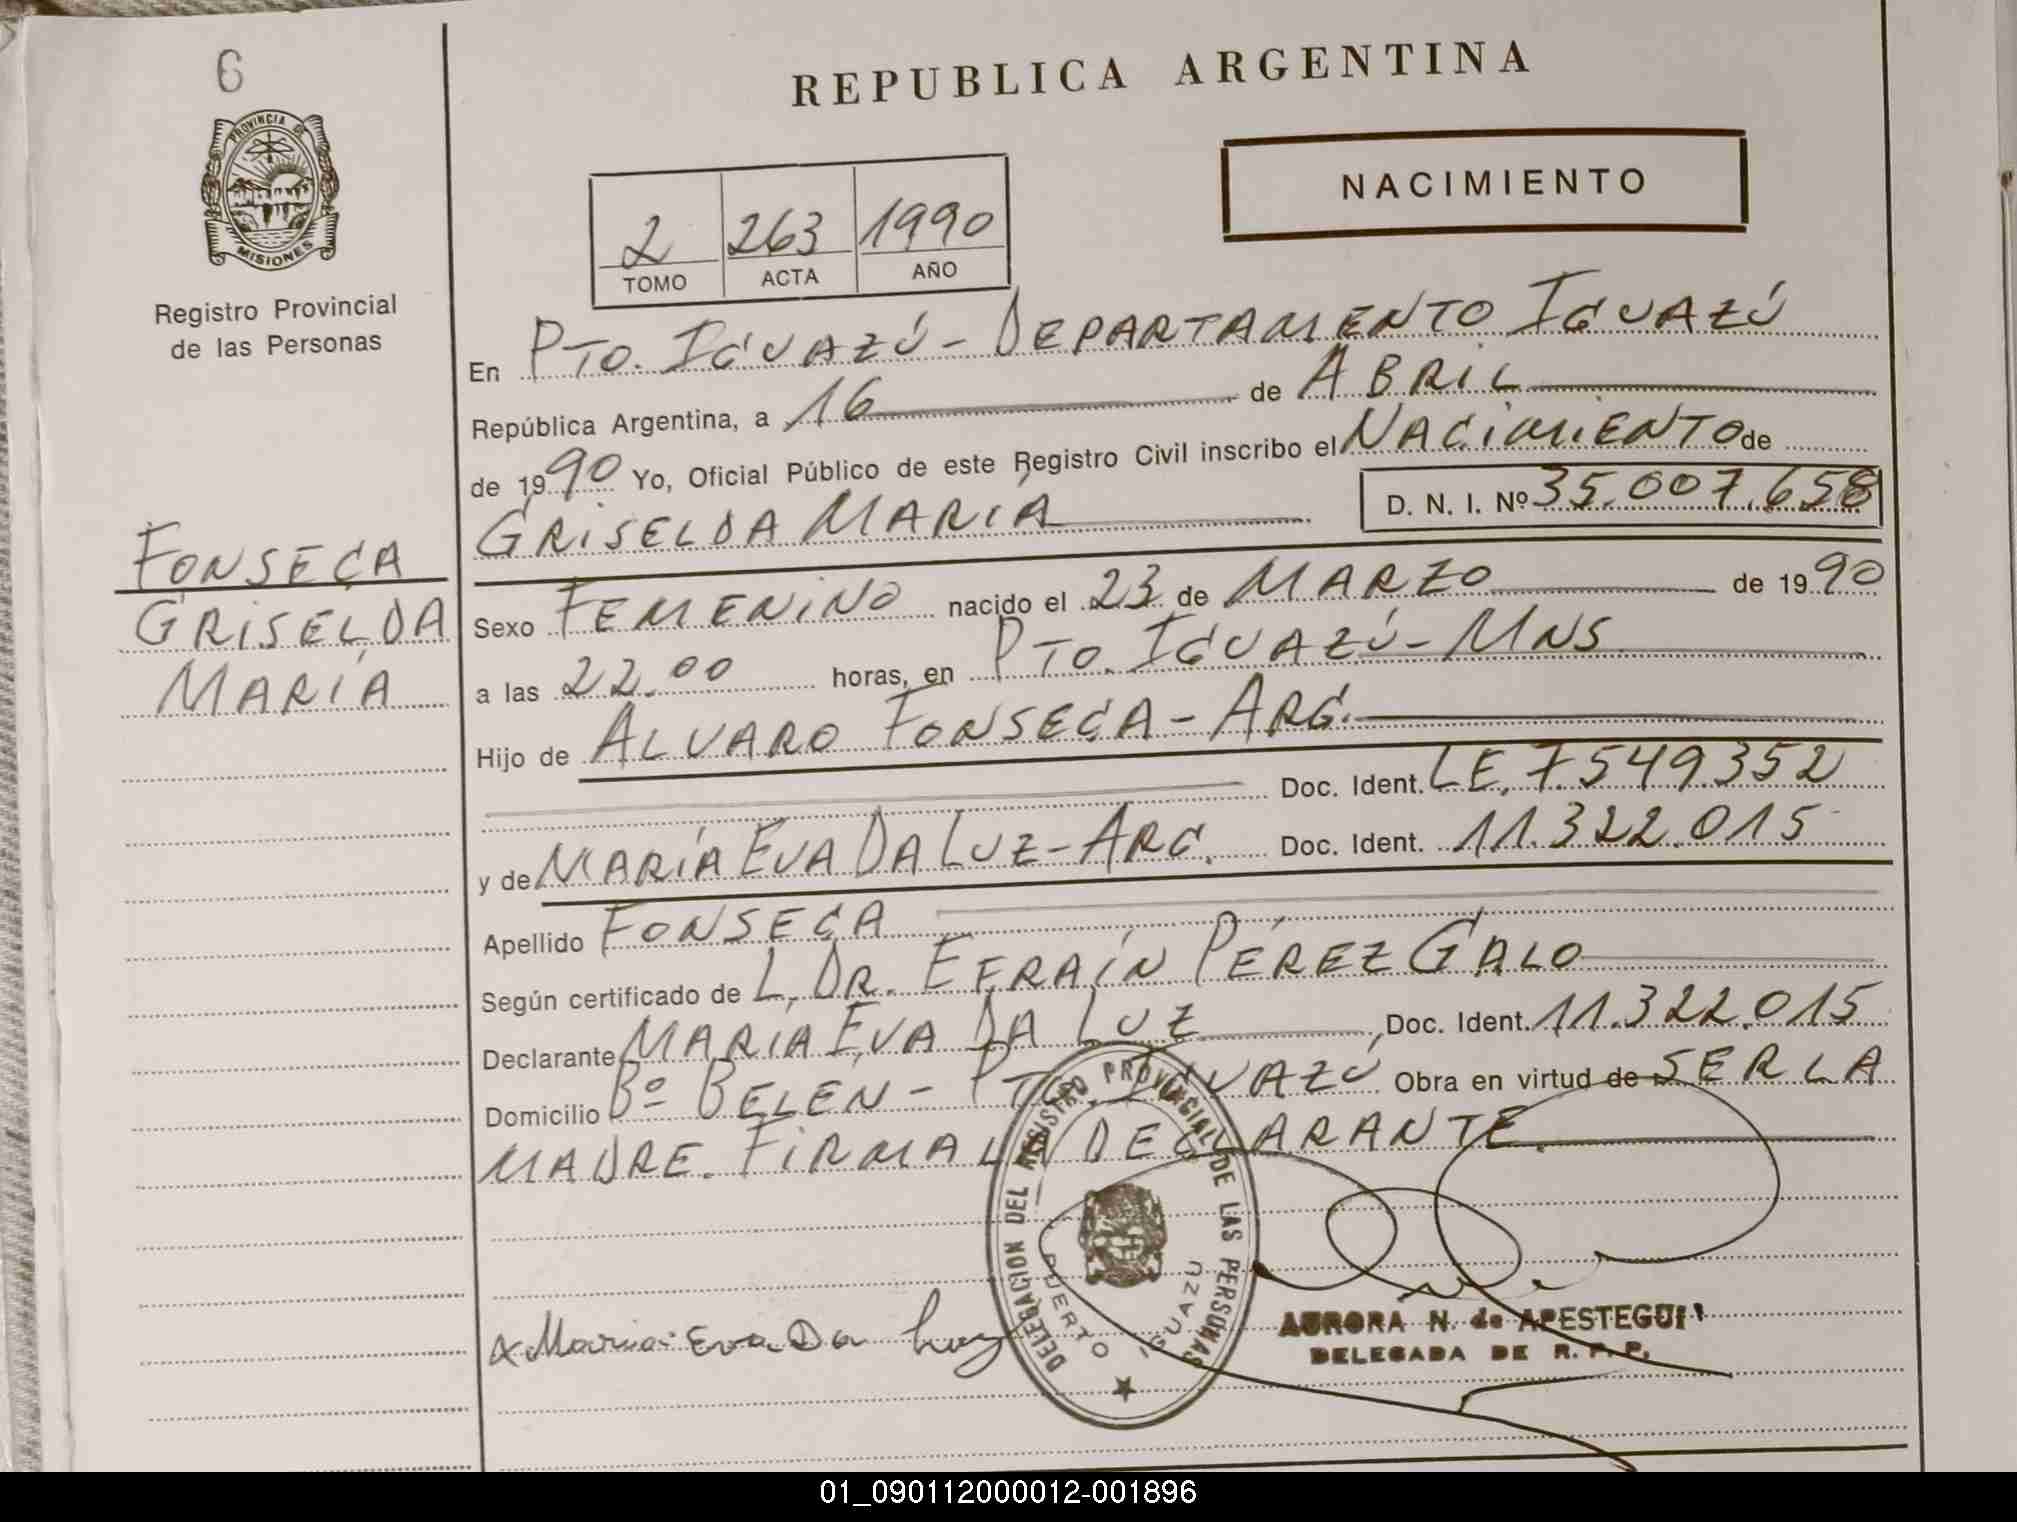 6
REPUBLICA ARGENTINA
PROVINCIA DE
MISIONES
Registro Provincial
de las Personas
NACIMIENTO
2 263 1990
TOMO ACTA AÑO
En PTO. IGUAZÚ - DEPARTAMENTO IGUAZÚ
República Argentina, a 16 de ABRIL
de 1990 Yo, Oficial Público de este Registro Civil inscribo el NACIMIENTO de
GRISELDA MARÍA D. N. I. Nº 35.007.658
FONSECA
GRISELDA
MARÍA
Sexo FEMENINO nacido el 23 de MARZO de 1990
a las 22.00 horas, en PTO. IGUAZÚ - MNS
Hijo de ALVARO FONSECA - ARG.
Doc. Ident. LE. 7.549.352
y de MARÍA EVA DA LUZ - ARG. Doc. Ident. 11.322.015
Apellido FONSECA
Según certificado de L. DR. EFRAÍN PÉREZ GALO
Declarante MARÍA EVA DA LUZ, Doc. Ident. 11.322.015
Domicilio Bº BELÉN - PTO. IGUAZÚ Obra en virtud de SER LA
MADRE. FIRMA LA DECLARANTE.
DELEGACION DEL REGISTRO PROVINCIAL DE LAS PERSONAS
PUERTO IGUAZU
Maria Eva Da Luz
AURORA N. de APESTEGUI
DELEGADA DE R. P. P.
01_090112000012-001896